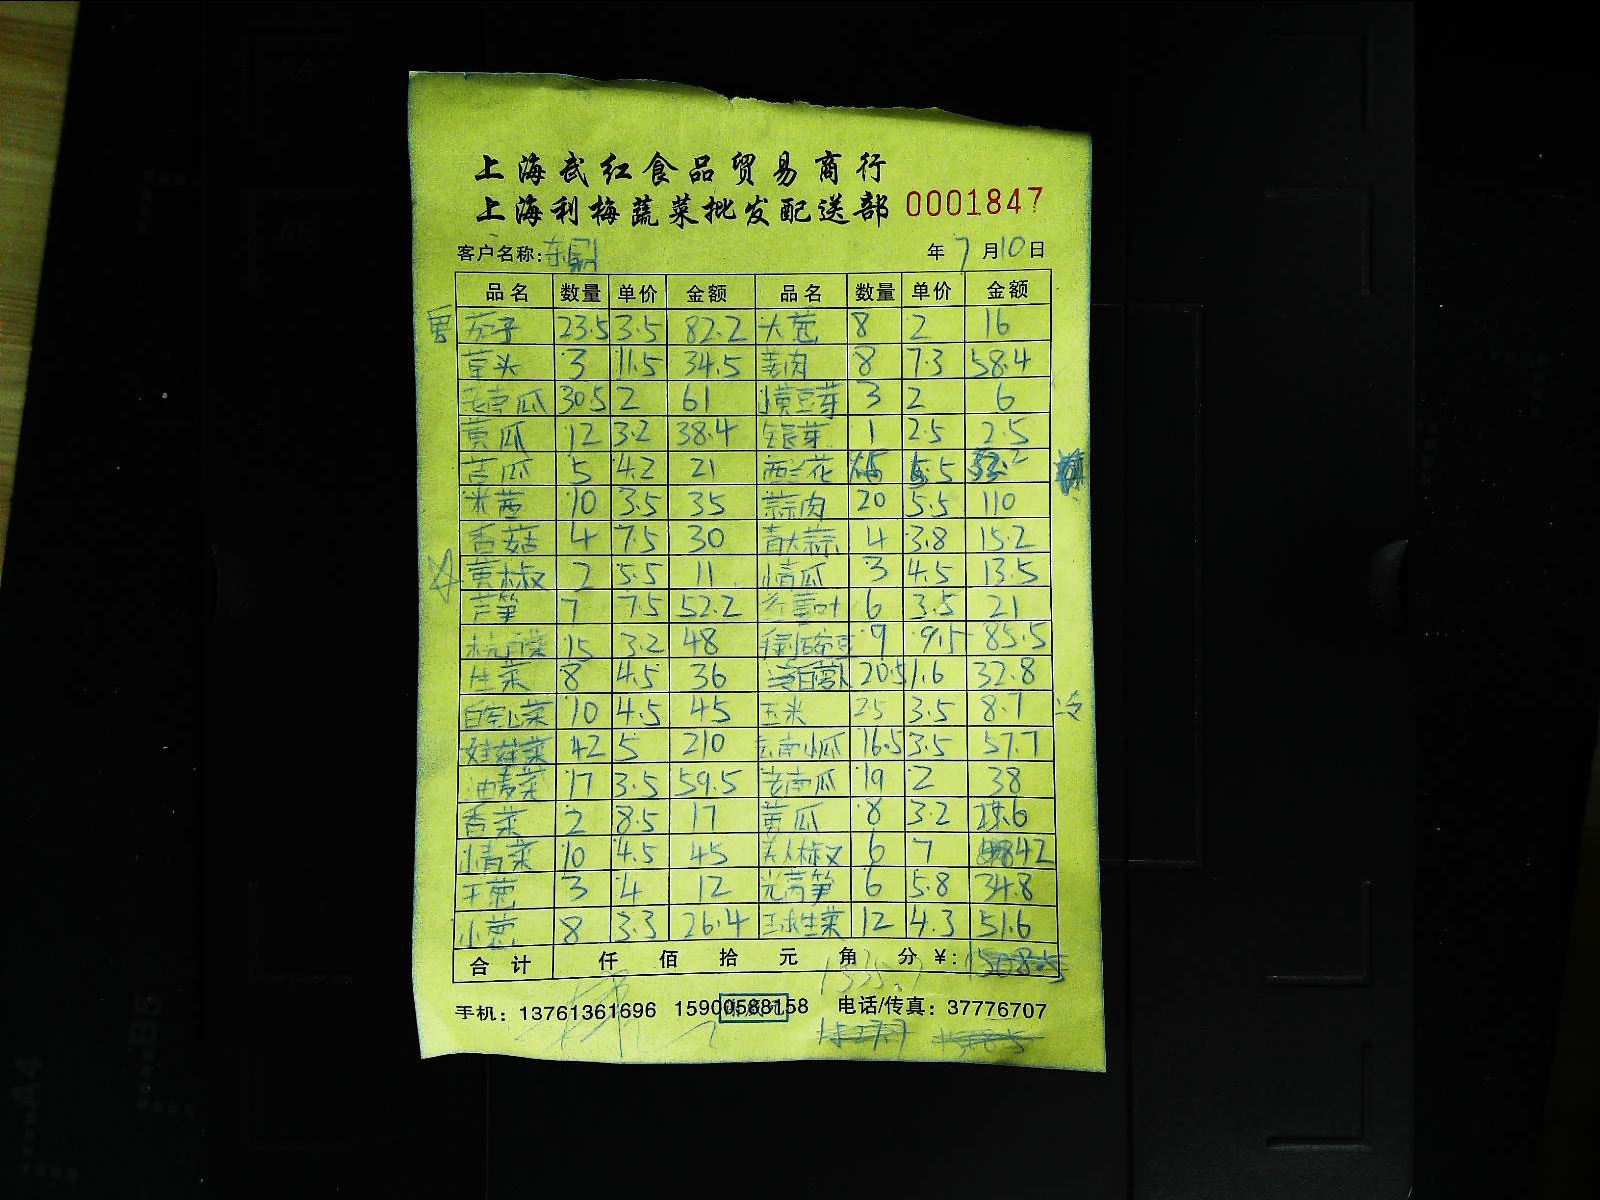 上海武红食品贸易商行
上海利梅蔬菜批发配送部 0001847
客户名称: 年 7 月 10 日
品名 数量 单价 金额 品名 数量 单价 金额
茄子 23.5 3.5 82.2 大葱 8 2 16
草头 3 11.5 34.5 姜肉 8 7.3 58.4
老南瓜 30.5 2 61 黄豆芽 3 2 6
黄瓜 12 3.2 38.4 银芽 1 2.5 2.5
苦瓜 5 4.2 21 西兰花 5.5
米苋 10 3.5 35 蒜肉 20 5.5 110
香菇 4 7.5 30 青大蒜 4 3.8 15.2
黄椒 2 5.5 11 3 4.5 13.5
芦笋 7 7.5 52.2 6 3.5 21
杭白菜 15 3.2 48 9 9.5 85.5
生菜 8 4.5 36 20.5 1.6 32.8
白空心菜 10 4.5 45 玉米 25 3.5 8.7
娃娃菜 42 5 210 16.5 3.5 57.7
油麦菜 17 3.5 59.5 老南瓜 19 2 38
香菜 2 8.5 17 黄瓜 8 3.2
小青菜 10 4.5 45 尖椒 6 7 42
干葱 3 4 12 光莴笋 6 5.8 34.8
小葱 8 3.3 26.4 玉米生菜 12 4.3 51.6
合计 仟 佰 拾 元 角 分 ¥:
手机: 13761361696 15900588158 电话/传真: 37776707